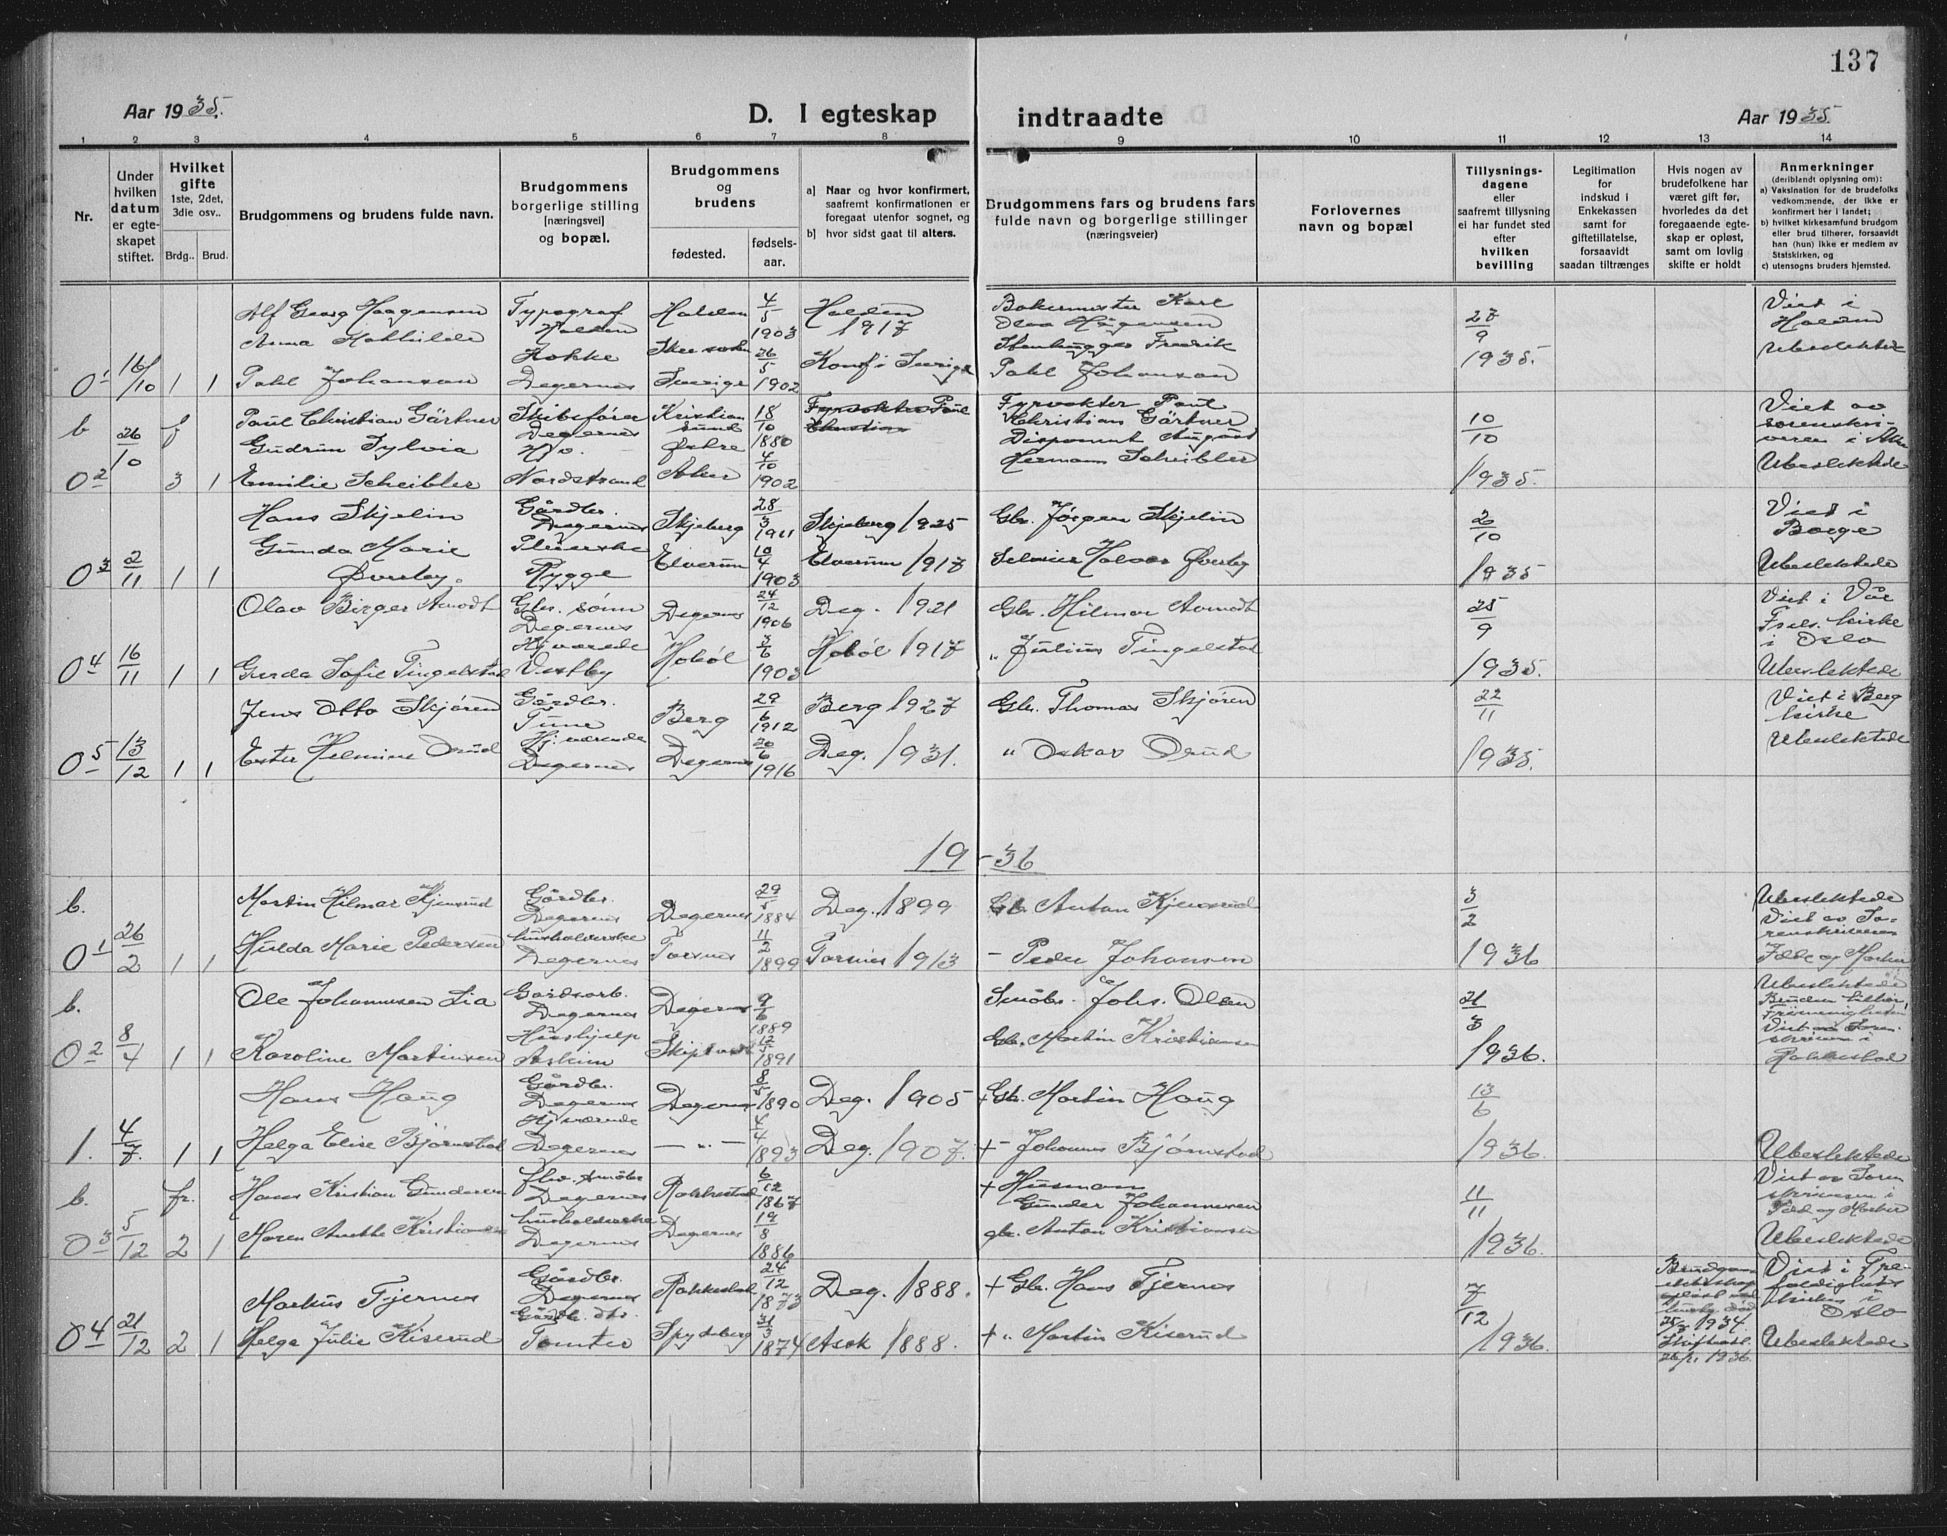 137
Aar 1935.
D. I egteskap indtraadte
Aar 1935
1 2 3 4 5 6 7 8 9 10 11 12 13 14
Nr.
Under hvilken datum er egteskapet stiftet.
Hvilket gifte 1ste, 2det, 3die osv..
Brdg.. Brud.
Brudgommens og brudens fulde navn.
Brudgommens borgerlige stilling [næringsvei] og bopæl.
Brudgommens og brudens
fødested.
fødselsaar.
a) Naar og hvor konfirmert, saafremt konfirmationen er foregaat utenfor sognet, og
b) hvor sidst gaat til alters.
Brudgommens fars og brudens fars fulde navn og borgerlige stillinger (næringsveier)
Forlovernes navn og bopæl
Tillysningsdagene eller saafremt tillysning ei har fundet sted efter hvilken bevilling
Legitimation for indskud i Enkekassen samt for giftetillatelse, forsaavidt saadan tiltrænges
Hvis nogen av brudefolkene har været gift før, hvorledes da det foregaaende egteskap er opløst, samt om lovlig skifte er holdt
Anmerkninger (deriblandt oplysning om):
a) Vaksination for de brudefolks vedkommende, der ikke er konfirmert her i landet;
b) hvilket kirkesamfund brudgom eller brud tilhører, forsaavidt han (hun) ikke er medlem av Statskirken, og
c) utensogns bruders hjemsted.
Alf Georg Haagensen Typograf Halden Halden 4/5 1903 Halden 1917 Bakermester Karl 27/9 1935. Viet i Halden
0 1 16/10 1 1 Anna Mathilde Pahl Johansson Kokke Degernes Sverige 26/5 1902 Konf. i Sverige Stenhugger Fredrik Pahl Johanson Ubeslektede
b 26/10 f Paul Christian Gärtner Skibsfører Degernes Kristiansund 18/10 1880 Fyrvokter Paul Christian Gärtner 10/10 1935. Viet av sorenskriveren i Aker
0 2 3 1 Gudrun Sylvia Emilie Scheibler Nordstrand Aker 4/10 1902 Disponent August Hermann Scheibler Ubeslektede
Hans Skjelin Gårdbr. Degernes Skjeberg 28/3 1911 Skjeberg 1925 Gbr. Jørgen Skjelin 20/10 1935 Viet i Borge
0 3 2/11 1 1 Gunda Marie Øverby. Pleierske Rygge Elverum 10/4 1903 Elverum 1917 Halvor Øverby Ubeslektede
Olav Birger Aamodt Gbr. sønn Degernes Degernes 24/12 1906 Deg. 1921 Gbr. Hilmar Aamodt 25/9 1935. Viet i Vår Frels. kirke i Oslo
0 4 16/11 1 1 Gerda Sofie Tingelstad Hj.værende Vestby Hobøl 3/6 1903 Hobøl 1917 " Julius Tingelstad Ubeslektede
Jens Otto Skjøren Gårdbr. Tune Berg 29/6 1912 Berg 1927 Gbr. Thomas Skjøren 22/11 1935. Viet i Berg kirke
0 5 13/12 1 1 Ester Helmine Orud Hj.værende Degernes Degernes 20/6 1916 Deg. 1931. " Oskar Orud Ubeslektede
19-36
b. Martin Hilmar Kjensrud Gårdbr. Degernes Degernes 29/5 1884 Deg. 1899 Gb. Anton Kjensrud 3/2 1936 Ubeslektede Viet av Sorenskriveren
0 1 26/2 1 1 Hulda Marie Pedersen husholderske Degernes Torsnes 11/2 1899 Torsnes 1913 - Peder Johansen
b. Ole Johannesen Lia Gårdsarb. Degernes Degernes 9/6 1889 Småbr. Johs. Olsen 21/3 1936. Ubeslektede
0 2 8/4 1 1 Karoline Martinsen Hushjelp Askim Skiptvedt 12/5 1891 Gbr. Martin Kristiansen Viet av Sorenskriveren i Rakkestad
Hans Haug Gårdbr. Degernes Degernes 8/5 1890 Deg. 1905 + Gbr. Martin Haug 13/6 1936.
1. 4/7. 1 1 Helga Elise Bjørnstad Hj.værende Degernes — " — 4/4 1893 Deg. 1907. + - Johannes Bjørnstad Ubeslektede
b. fr. Hans Kristian Gundersen Degernes Rakkestad 6/12 1867 + Husmann Gunder Johannesen 11/11 1936. Viet av Sorenskriveren i
0 3 5/12 2 1 Maren Anette Kristiansen husholderske Degernes Degernes 19/8 1886 gbr. Anton Kristiansen Ubeslektede
Markus Fjernes Gårdbr. Degernes Rakkestad 24/12 1873 Deg. 1888. + Gbr. Hans Fjernes 7/12 1936. Viet i Trefoldighetskirken i Oslo
0 4 21/12 2 1 Helga Julie Kiserud Gårdb. dtr. Tomter Spydeberg 31/3 1874 Ask 1888. + " Martin Kiserud 1934 1936. Ubeslektede